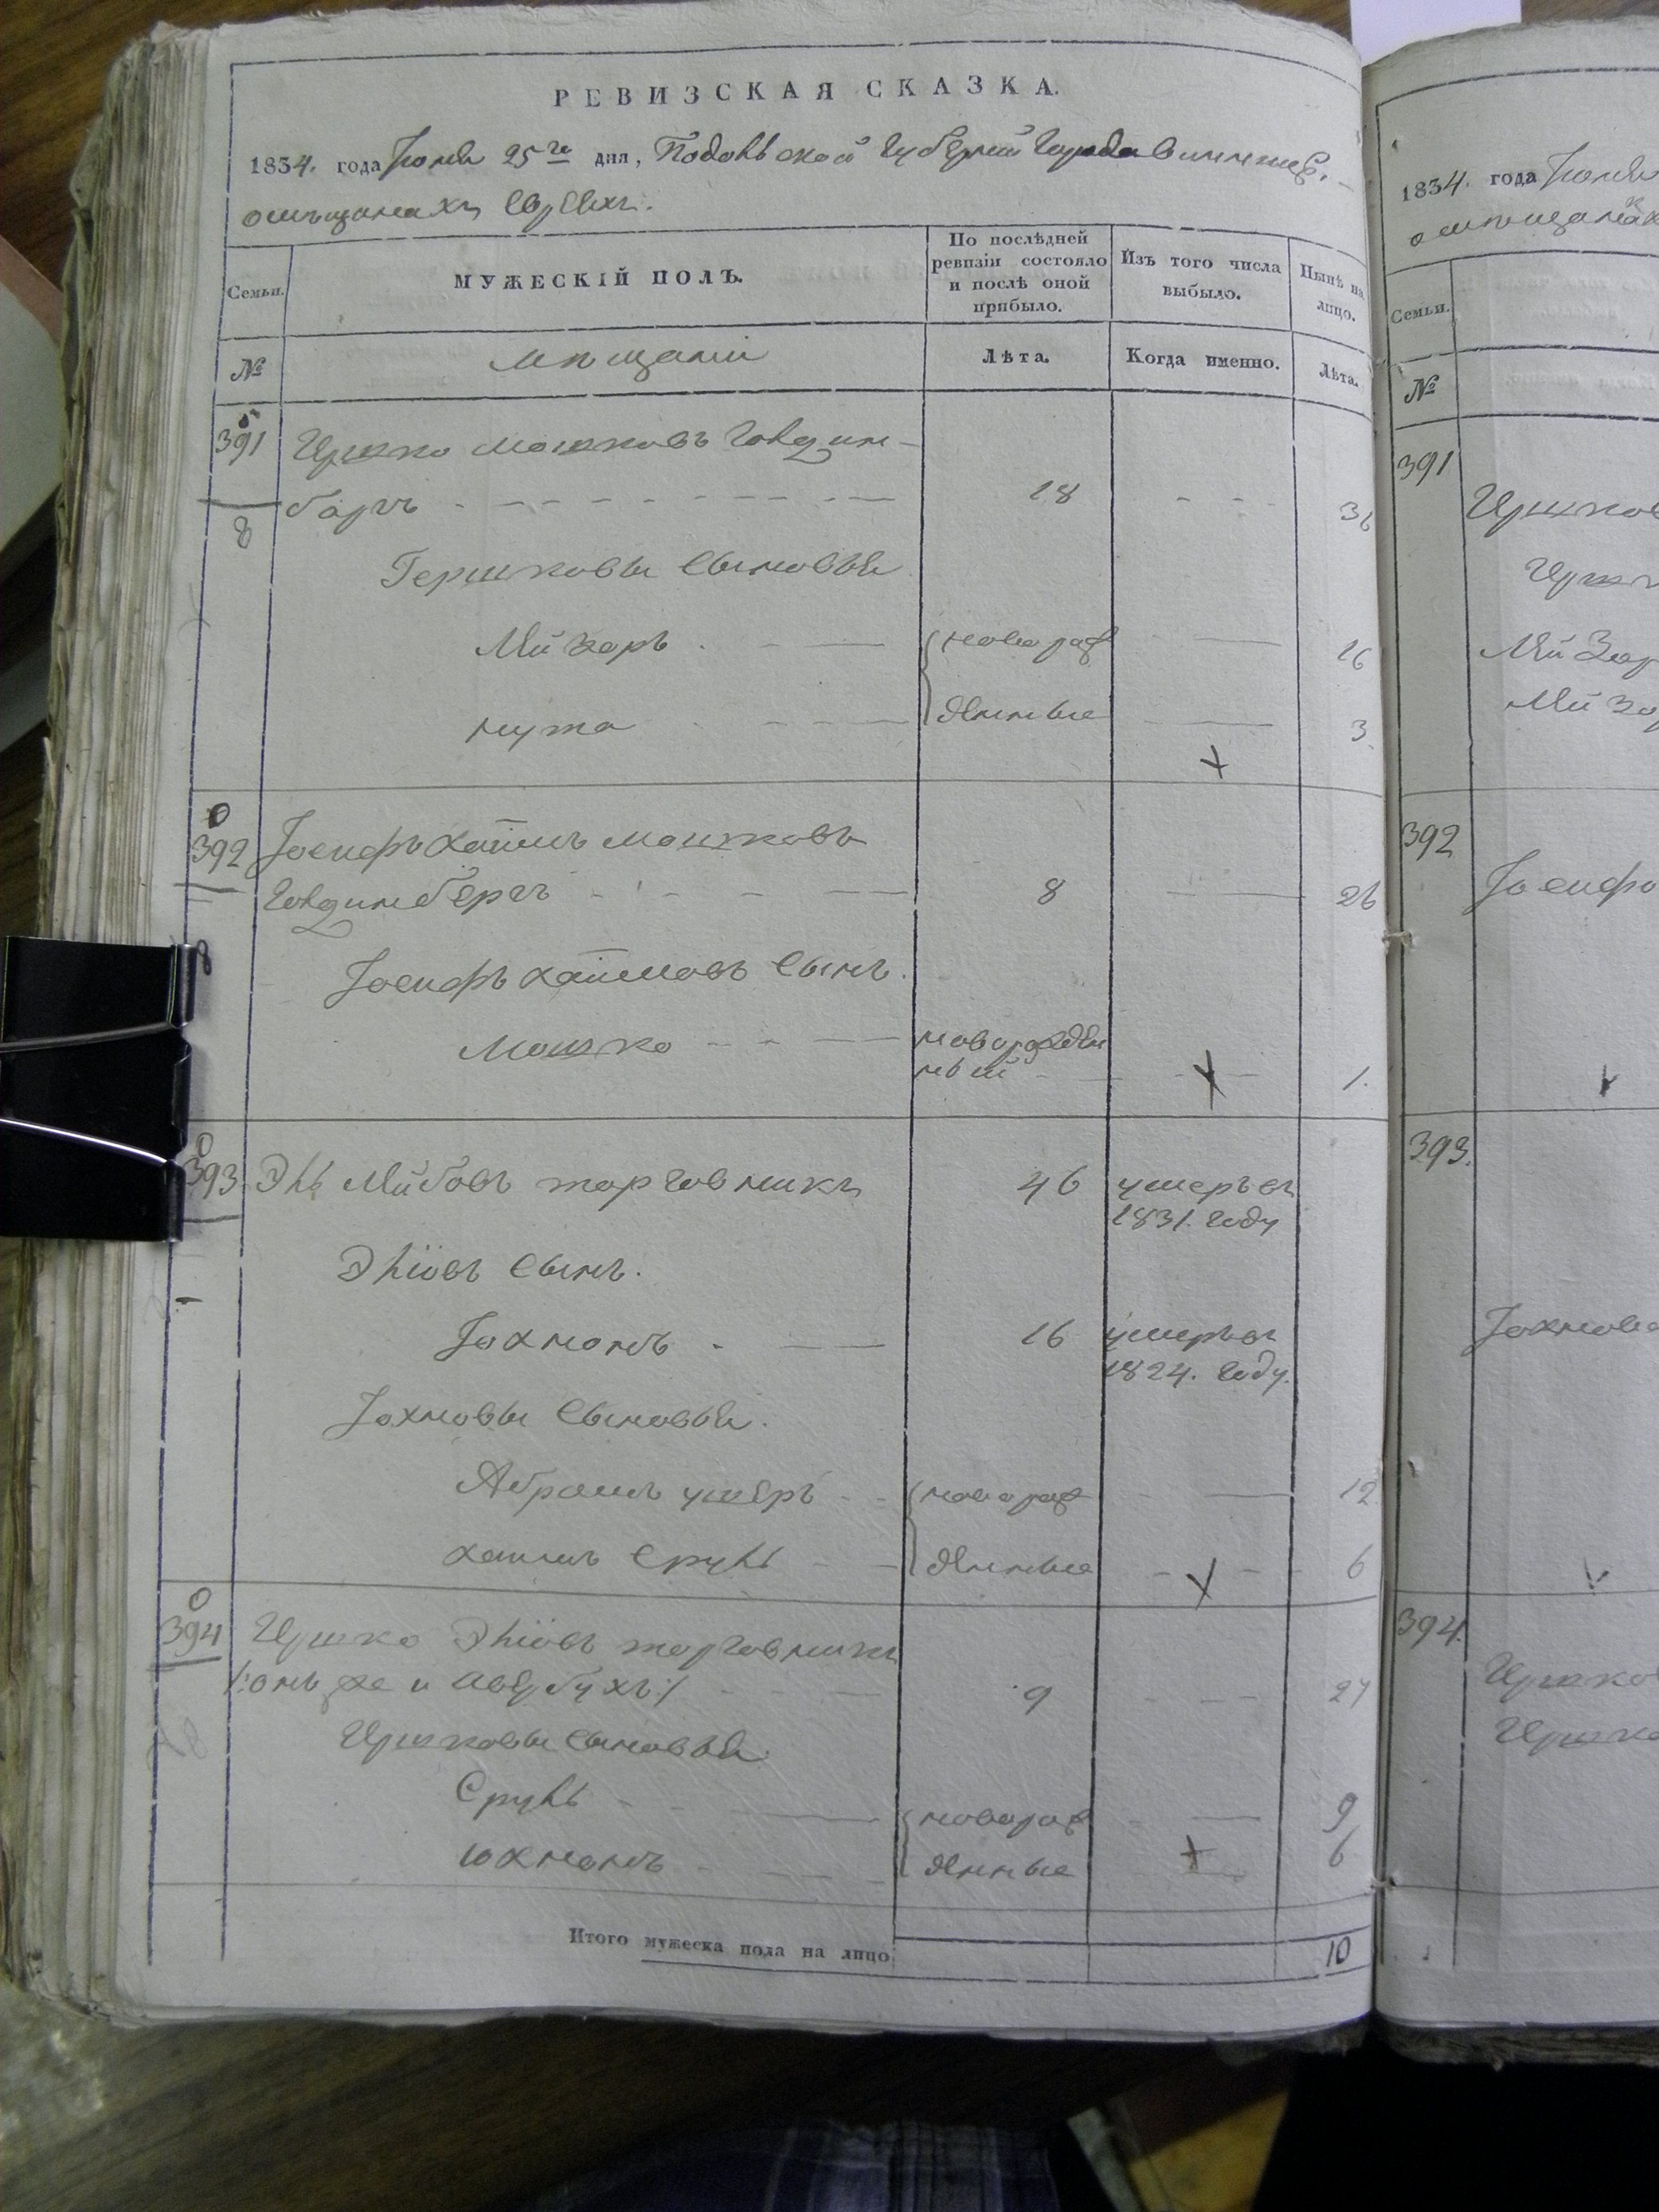 РЕВИЗСКАЯ СКАЗКА.
1834. года Іюня 25го дня, Подольской Губерніи Города Винницы.
о мѣщанахъ Евреяхъ.
Семьи.
МУЖЕСКІЙ ПОЛЪ.
По послѣдней ревизіи состояло и послѣ оной прибыло.
Изъ того числа выбыло.
Нынѣ на лицо.
№
мѣщане
Лѣта.
Когда именно.
Лѣта.
391 Гершко Мошковъ Голдин-
8 бергъ 18 36
Гершковы сыновья
Лейзоръ новорож 16
нута денные 3.
392 Іосифъ Хаимъ Мошковъ
Голдинбергъ 8 26
8
Іосифъ Хаимовъ сынъ.
Мошко новорожден
ный 1.
393. Эль Лейбовъ торговникъ 46 умеръ въ
1831. году
Эліовъ сынъ.
Іохнонъ 16 умеръ въ
1824. году.
Іохновы сыновья.
Абрамъ ушеръ новорож 12
хаимъ Сруль денные 6
394 Гершко Эліовъ торговникъ
/:онъ же и Авербухъ:/ 9 27
Гершковы сыновья.
Сруль новорож 9
юхнонъ денные 6
Итого мужеска пола на лицо 10
1834. года Іюня
о мѣщанах
Семьи.
№
391
Гершков
392
Іосифо
393.
Іохнов
394.
Гершко
Гершко